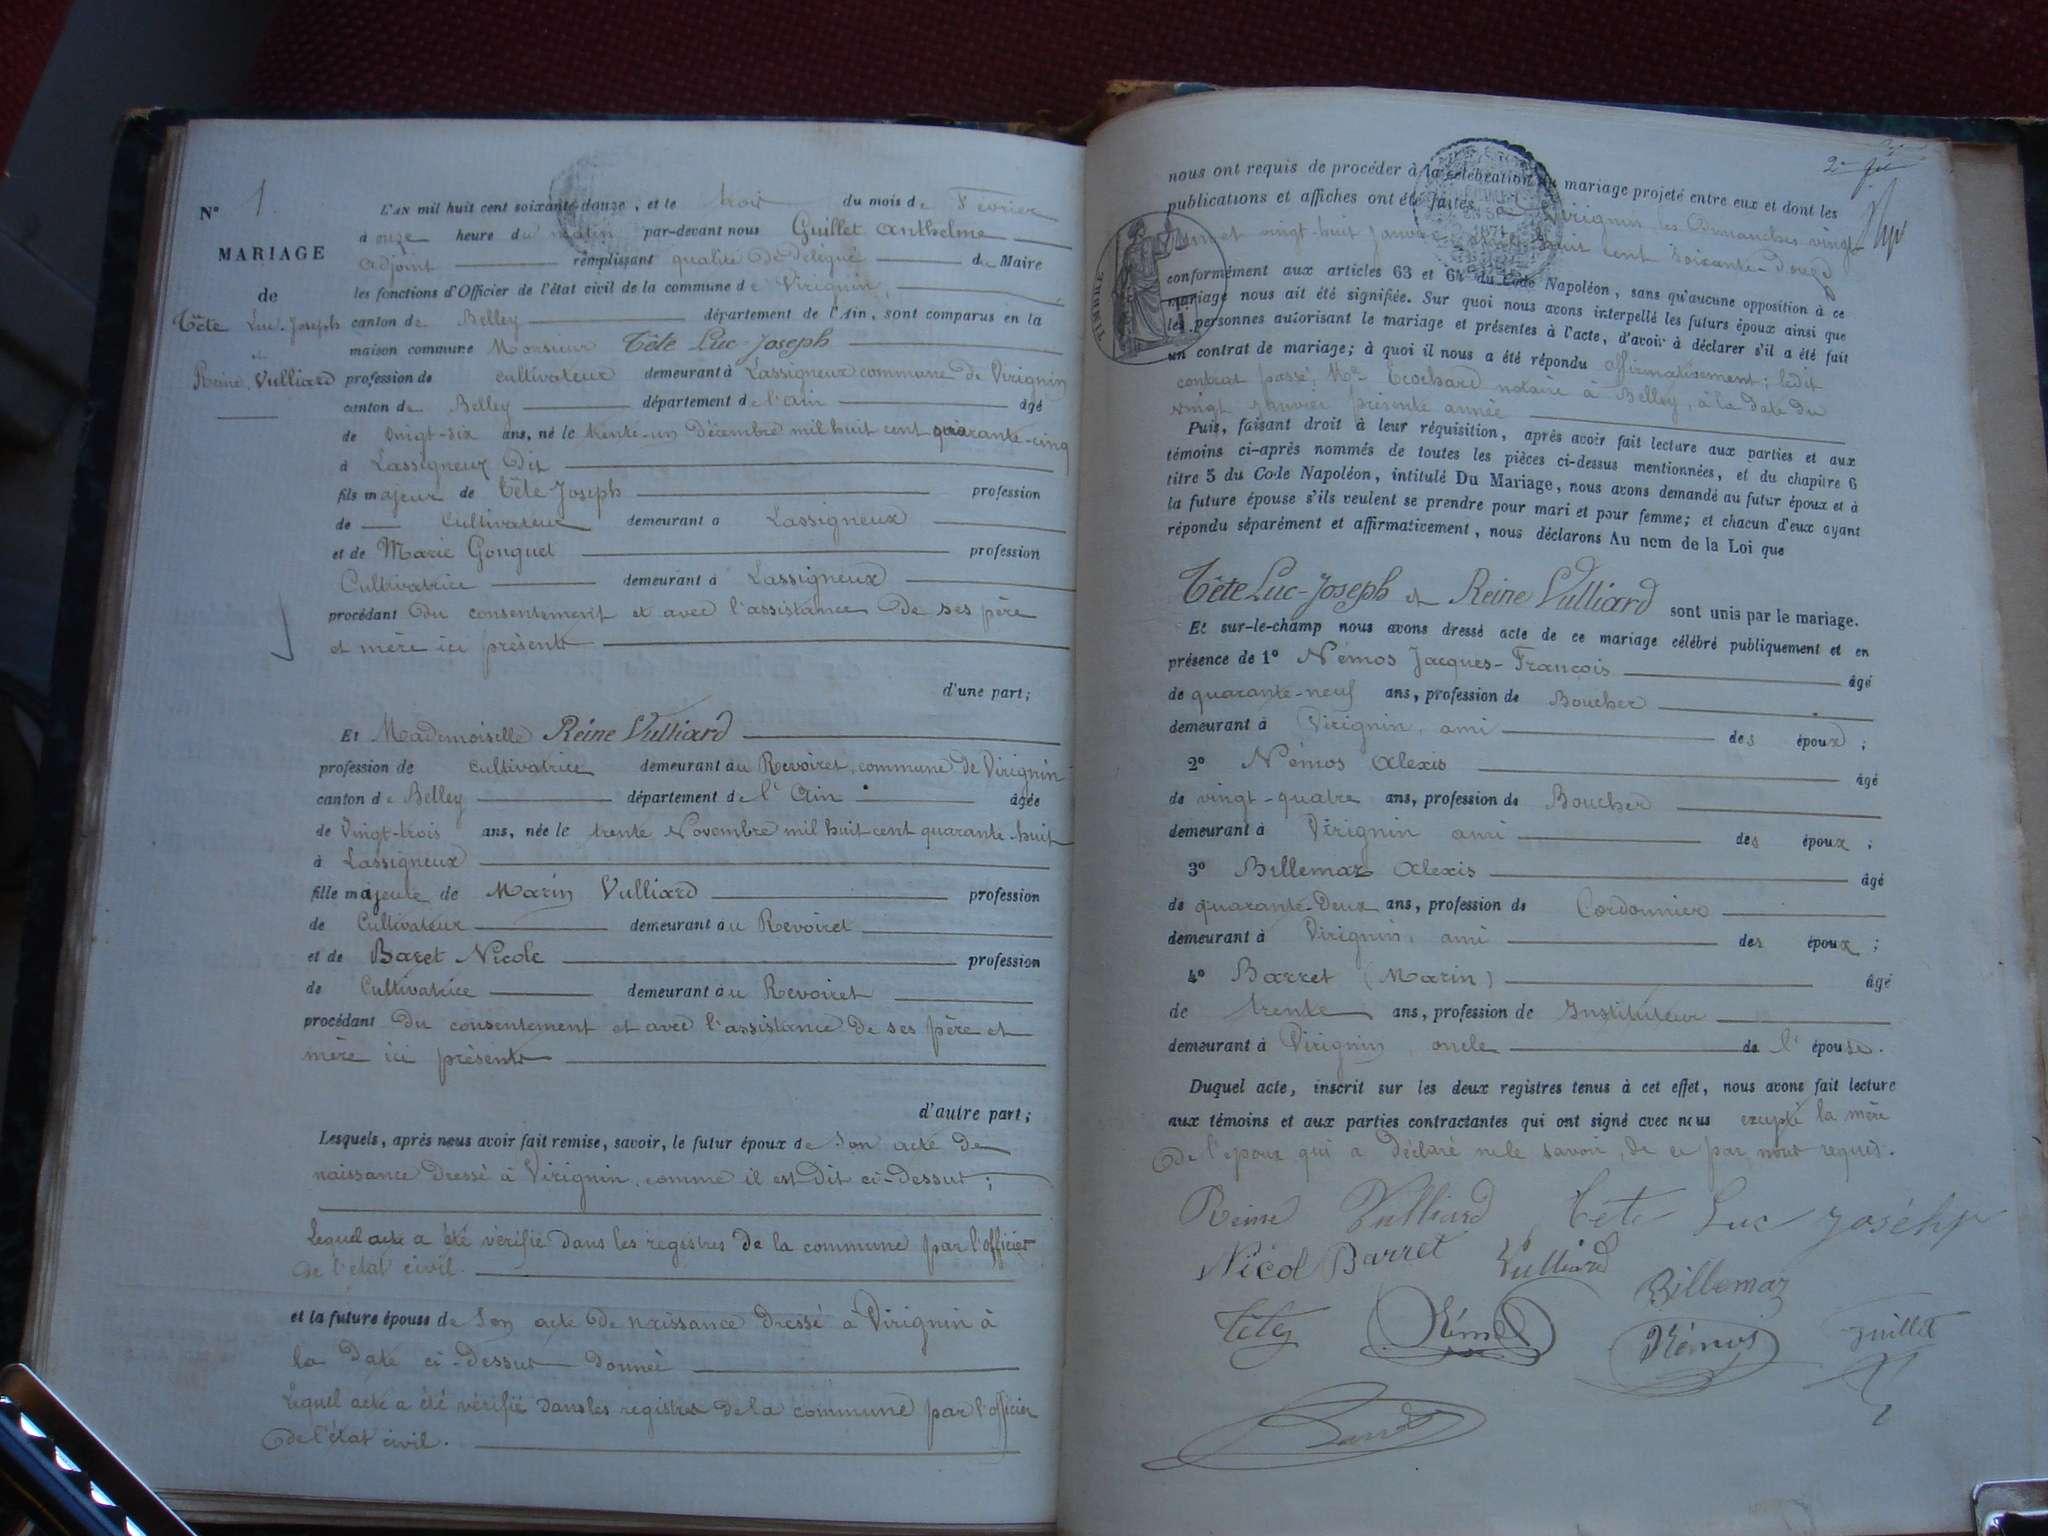 N° 1.
MARIAGE
de
Tête Luc Joseph
et
Reine Vulliard
L'AN mil huit cent soixante-douze, et le trois du mois de Février
à onze heure du matin par-devant nous Guillet Anthelme
Adjoint remplissant qualité de délégué du Maire
les fonctions d'Officier de l'état civil de la commune de Virignin,
canton de Belley département de l'Ain, sont comparus en la
maison commune Monsieur Tête Luc-Joseph
profession de cultivateur demeurant à Lassigneux commune de Virignin
canton de Belley département de l'Ain âgé
de vingt-six ans, né le trente-un Décembre mil huit cent quarante-cinq
à Lassigneux dit
fils majeur de Tête Joseph profession
de Cultivateur demeurant à Lassigneux
et de Marie Gonguet profession
Cultivatrice demeurant à Lassigneux
procédant du consentement et avec l'assistance de ses père
et mère ici présents
d'une part;
Et Mademoiselle Reine Vulliard
profession de cultivatrice demeurant au Revoiret, commune de Virignin
canton de Belley département de l'Ain âgée
de Vingt-trois ans, née le trente Novembre mil huit cent quarante-huit
à Lassigneux
fille majeure de Marin Vulliard profession
de Cultivateur demeurant au Revoiret
et de Baret Nicole profession
de Cultivatrice demeurant au Revoiret
procédant du consentement et avec l'assistance de ses père et
mère ici présents
d'autre part;
Lesquels, après nous avoir fait remise, savoir, le futur époux de son acte de
naissance dressé à Virignin, comme il est dit ci-dessus;
Lequel acte a été vérifié dans les registres de la commune par l'officier
de l'état civil.
et la future épouse de son acte de naissance dressé à Virignin à
la date ci-dessus donnée
Lequel acte a été vérifié dans les registres de la commune par l'officier
de l'état civil.
nous ont requis de procéder à la célébration du mariage projeté entre eux et dont les
publications et affiches ont été faites à Virignin les dimanches vingt-
un et vingt-huit janvier mil huit cent soixante-douze
conformément aux articles 63 et 64 du Code Napoléon, sans qu'aucune opposition à ce
mariage nous ait été signifiée. Sur quoi nous avons interpellé les futurs époux ainsi que
les personnes autorisant le mariage et présentes à l'acte, d'avoir à déclarer s'il a été fait
un contrat de mariage; à quoi il nous a été répondu affirmativement; ledit
contrat passé, Me Trochard notaire à Belley, à la date du
vingt janvier présente année
Puis, faisant droit à leur réquisition, après avoir fait lecture aux parties et aux
témoins ci-après nommés de toutes les pièces ci-dessus mentionnées, et du chapitre 6
titre 5 du Code Napoléon, intitulé Du Mariage, nous avons demandé au futur époux et à
la future épouse s'ils veulent se prendre pour mari et pour femme; et chacun d'eux ayant
répondu séparément et affirmativement, nous déclarons Au nom de la Loi que
Tête Luc-Joseph et Reine Vulliard sont unis par le mariage.
Et sur-le-champ nous avons dressé acte de ce mariage célébré publiquement et en
présence de 1° Némos Jacques-François âgé
de quarante-neuf ans, profession de Boucher
demeurant à Virignin, ami des époux;
2° Némos Alexis âgé
de vingt-quatre ans, profession de Boucher
demeurant à Virignin ami des époux;
3° Billemaz Alexis âgé
de quarante-deux ans, profession de Cordonnier
demeurant à Virignin, ami des époux;
4° Barret (Marin) âgé
de trente ans, profession de Instituteur
demeurant à Virignin, oncle de l'épouse.
Duquel acte, inscrit sur les deux registres tenus à cet effet, nous avons fait lecture
aux témoins et aux parties contractantes qui ont signé avec nous excepté la mère
de l'époux qui a déclaré ne le savoir, de ce par nous requis.
Reine Vulliard Tête Luc Joséhp
Nicol Barret Vulliard Billemaz
Tête Némos Némos Guillet
Barret
TIMBRE
1871